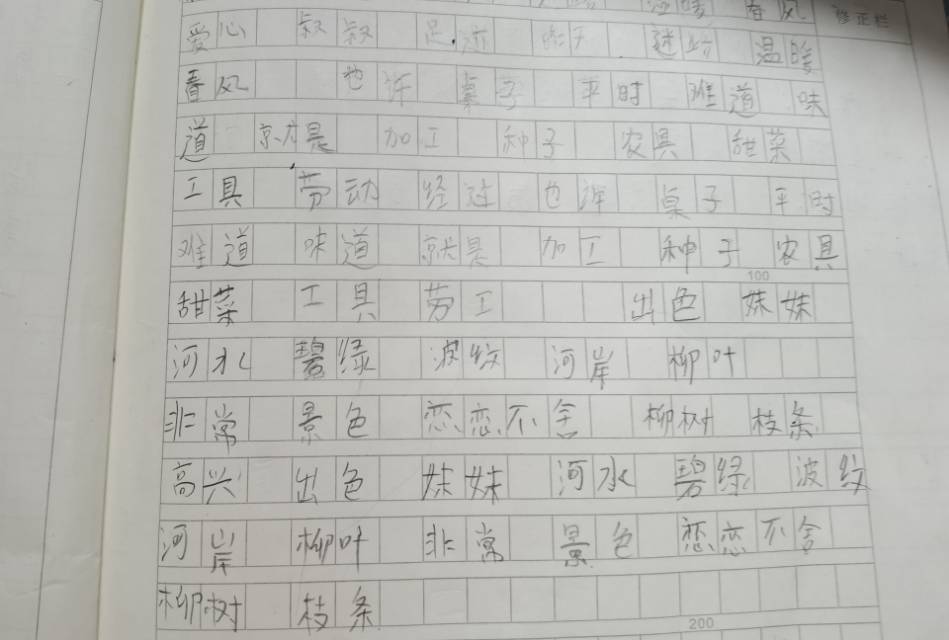 温暖 春风 修正栏
爱心 叔叔 足迹 昨天 迷路 温暖
春风 也许 桌子 平时 难道 味
道 就是 加工 种子 农具 甜菜
工具 劳动 经过 也许 桌子 平时
难道 味道 就是 加工 种子 农具
100
甜菜 工具 劳工 出色 妹妹
河水 碧绿 波纹 河岸 柳叶
非常 景色 恋恋不舍 柳树 枝条
高兴 出色 妹妹 河水 碧绿 波纹
河岸 柳叶 非常 景色 恋恋不舍
柳树 枝条
200